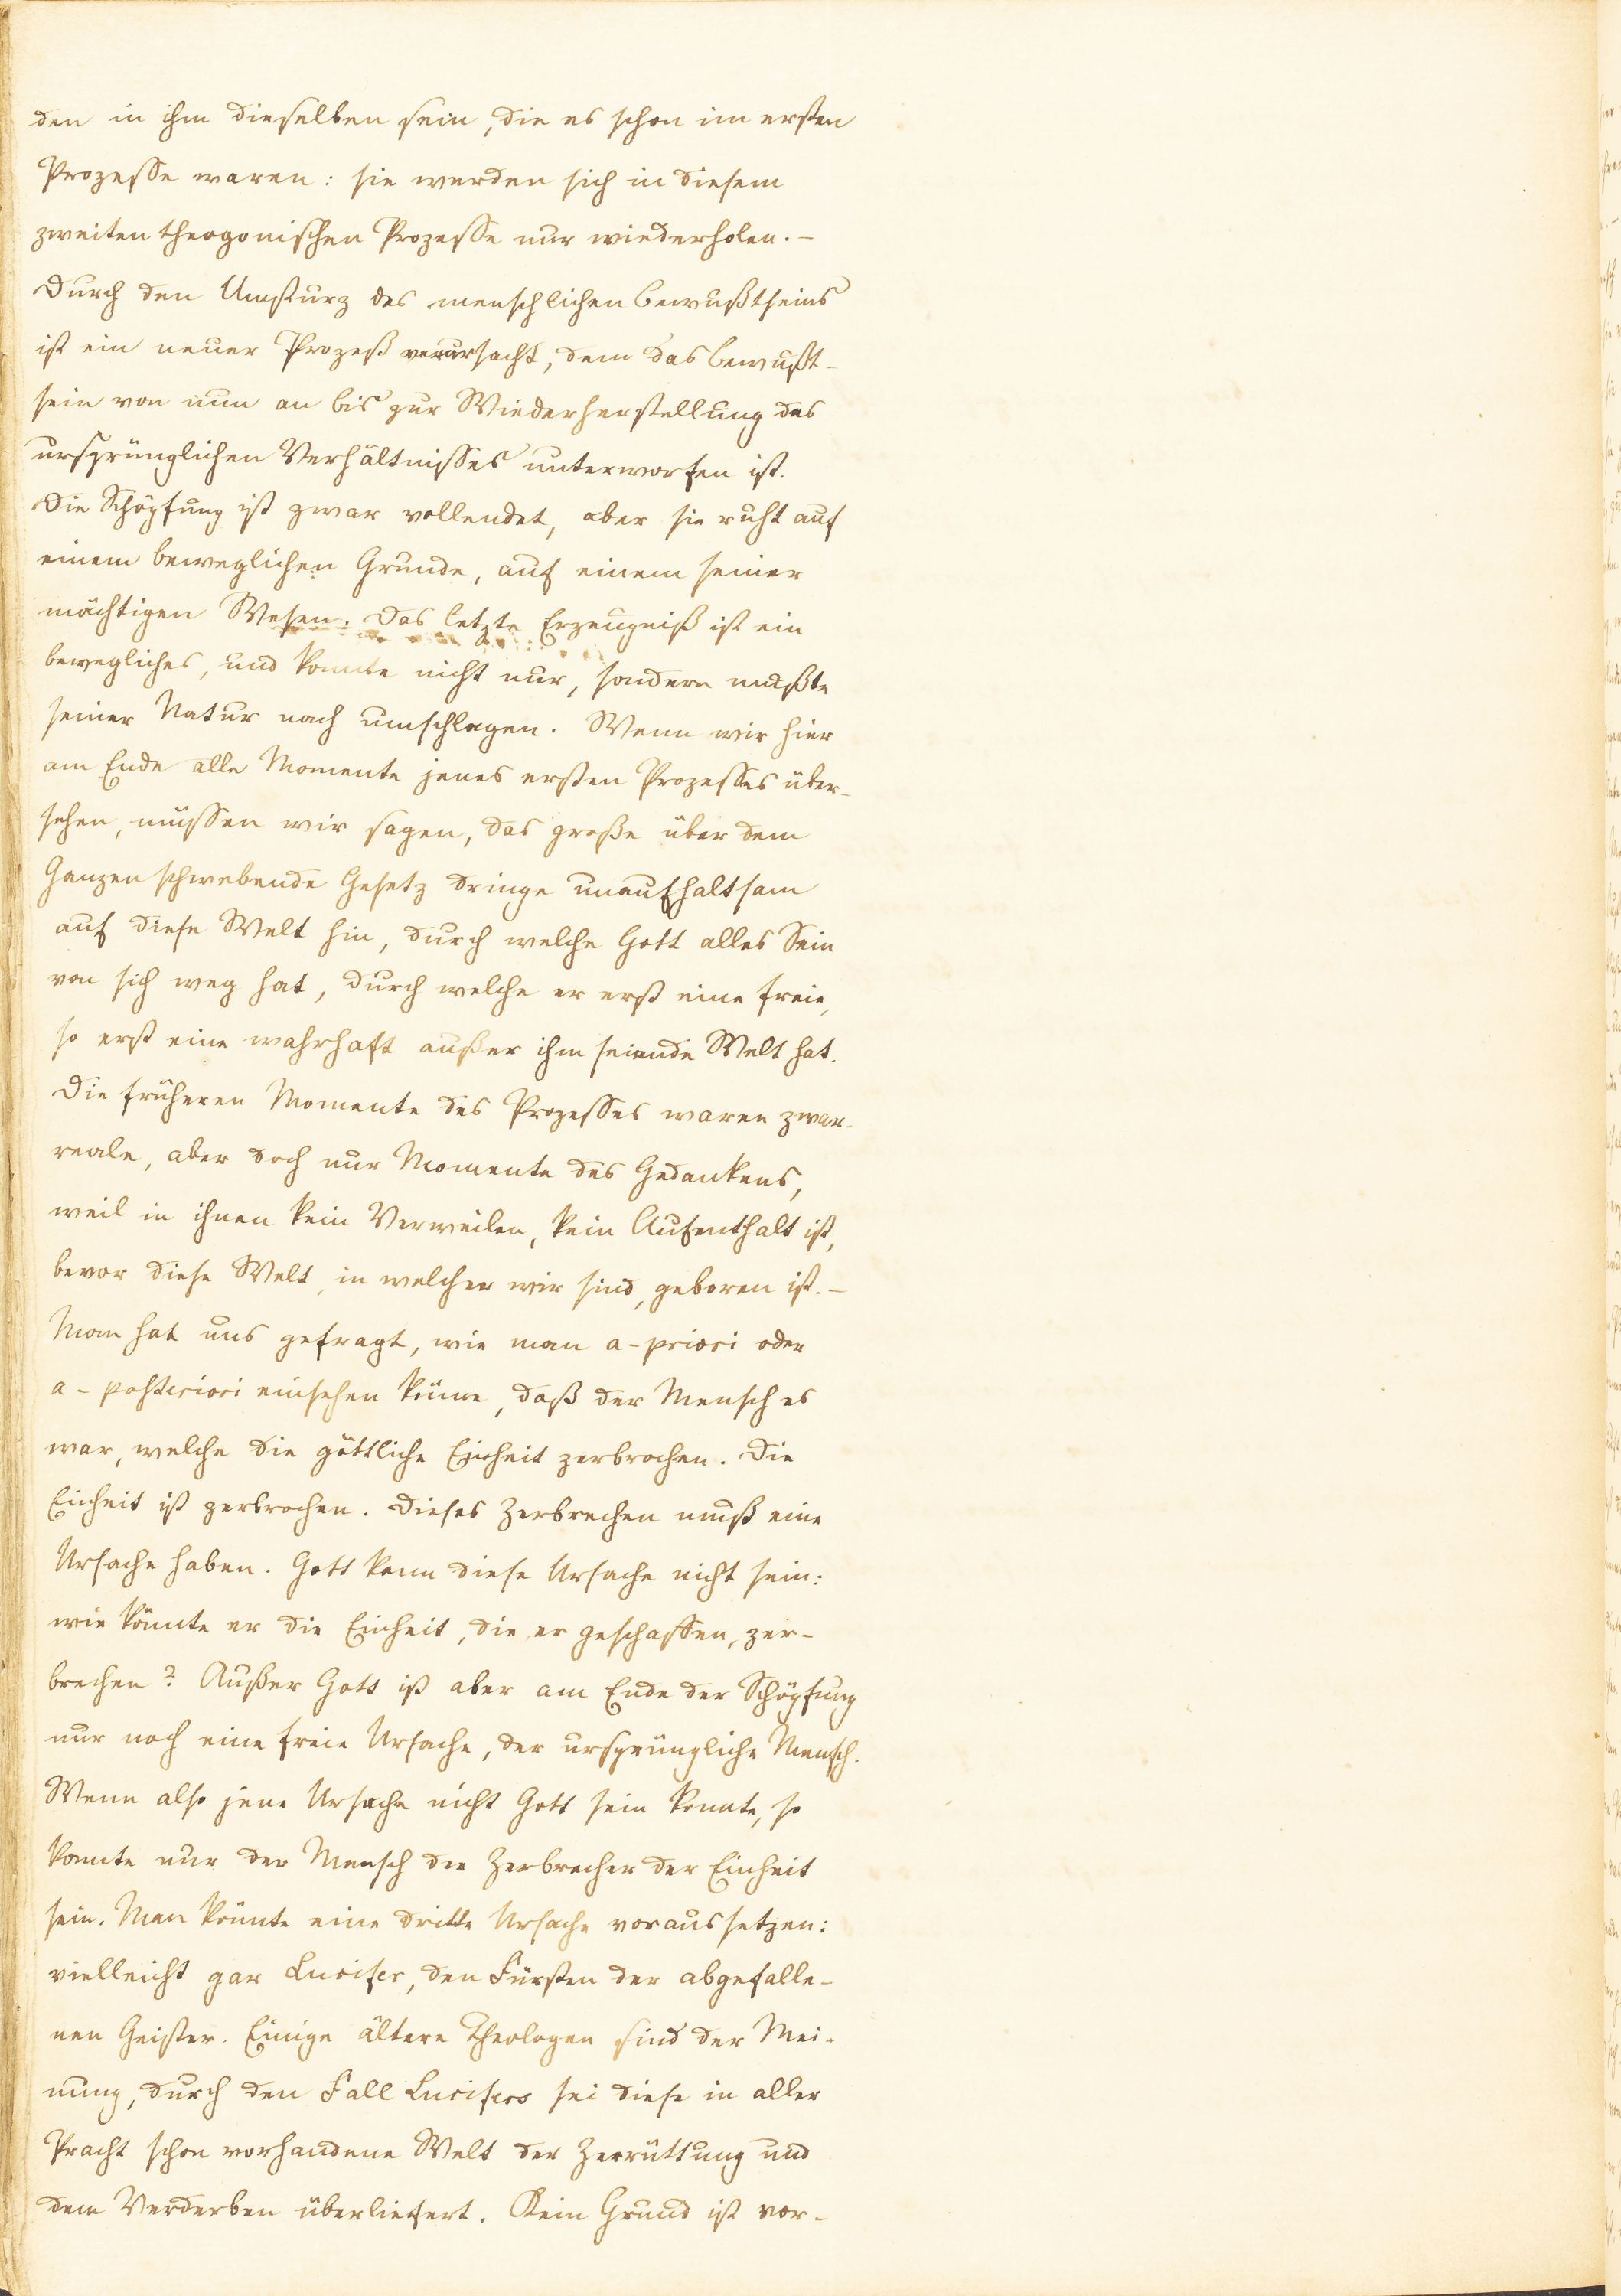 den in ihm dieselben sein, die es schon im ersten
Prozesse waren: sie werden sich in diesem
zweiten theogonischen Prozesse nur wiederholen. –
Durch den Umsturz des menschlichen Bewußtseins
ist ein neuer Prozeß verursacht, dem das Bewußt-
sein von nun an bis zur Wiederherstellung des
ursprünglichen Verhältnisses unterworfen ist.
Die Schöpfung ist zwar vollendet, aber sie ruht auf
einem beweglichen Grunde, auf einem seiner
mächtigen Wesen. Das letzte Erzeugniß ist ein
bewegliches, und konnte nicht nur, sondern mußte
seiner Natur nach umschlagen. Wenn wir hier
am Ende alle Momente jenes ersten Prozesses über-
sehen, müssen wir sagen, das große über dem
Ganzen schwebende Gesetz dringe unaufhaltsam
auf diese Welt hin, durch welche Gott alles Sein
von sich weg hat, durch welche er erst eine freie,
so erst eine wahrhaft außer ihm seiende Welt hat.
Die früheren Momente des Prozesses waren zwar
reale, aber doch nur Momente des Gedankens,
weil in ihnen kein Verweilen, kein Aufenthalt ist,
bevor diese Welt, in welcher wir sind, geboren ist. –
Man hat uns gefragt, wie man a-priori oder
a-posteriori einsehen könne, daß der Mensch es
war, welche die göttliche Einheit zerbrochen. Die
Einheit ist zerbrochen. Dieses Zerbrechen muß eine
Ursache haben. Gott kann diese Ursache nicht sein:
wie könnte er die Einheit, die er geschaffen, zer-
brechen? Außer Gott ist aber am Ende der Schöpfung
nur noch eine freie Ursache, der ursprüngliche Mensch.
Wenn also jene Ursache nicht Gott sein konnte, so
konnte nur der Mensch der Zerbrecher der Einheit
sein. Man könnte eine dritte Ursache voraussetzen:
vielleicht gar Lucifer, den Fürsten der abgefalle-
nen Geister. Einige ältere Theologen sind der Mei-
nung, durch den Fall Lucifers sei diese in aller
Pracht schon vorhandene Welt der Zerrüttung und
dem Verderben überliefert. Kein Grund ist vor-